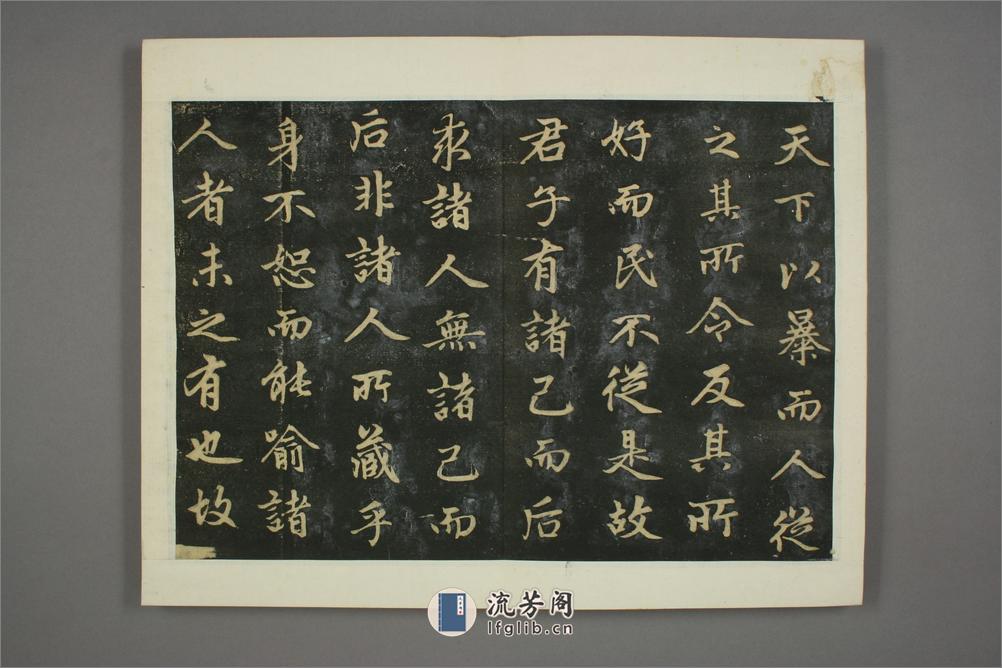 天下以暴而人從
之其所令反其所
好而民不從是故
君子有諸己而后
求諸人無諸己而
后非諸人所藏乎
身不恕而能喻諸
人者未之有也故
流芳阁
lfglib.cn